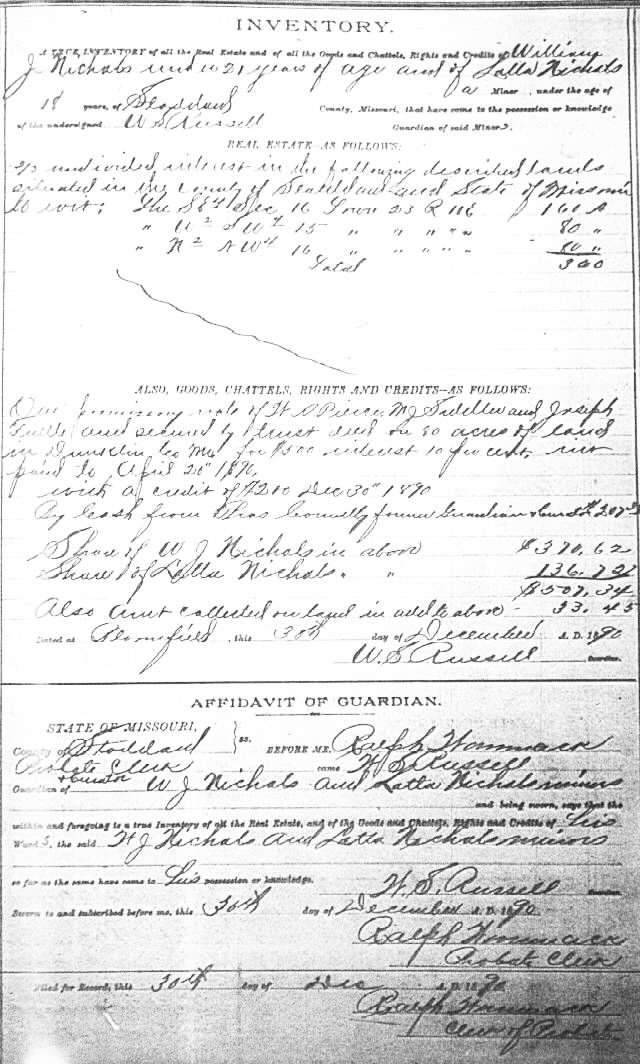 INVENTORY.
A TRUE INVENTORY of all the Real Estate and of all the Goods and Chattels, Rights and Credits of William
J Nichols und 21 years of age and of Lotta Nichols
a Minor, under the age of
18 years, of Stoddard County, Missouri, that have come to the possession or knowledge
of the undersigned W S Russell Guardian of said Minors.
REAL ESTATE—AS FOLLOWS:
2/3 undivided interest in the following described lands
situated in the County of Stoddard and State of Missouri
to wit: The S E 4 Sec 16 Town 23 R 11 E 160 A
" W 2 S W 4 15 " " " " " 80 "
" N 2 N W 4 16 " " " " " 80 "
Total 320
ALSO, GOODS, CHATTELS, RIGHTS AND CREDITS—AS FOLLOWS:
One promissory note of Pierce, M J and Joseph
Tuttle and secured by trust deed on 80 acres of land
in Dunklin Co Mo for $500 interest 10 per cent, int
paid to April 20" 1890
with a credit of $200 Dec 30" 1890
By Cash from Thos Connelly former Guardian & Cur
Share of W J Nichols in above $370.62
Share of Lotta Nichols " " 136.72
$507.34
Also amt collected on land in add to above - 33.45
Dated at Bloomfield, this 30th day of December A. D. 1890
W. S. Russell Guardian.
AFFIDAVIT OF GUARDIAN.
STATE OF MISSOURI,
County of Stoddard } ss. BEFORE ME, Ralph Wammack
Probate Clerk came W. S. Russell
Guardian & Curator of W J Nichols and Lotta Nichols minors
and being sworn, says that the
within and foregoing is a true Inventory of all the Real Estate, and of the Goods and Chattels, Rights and Credits of his
Wards, the said W J Nichols and Lotta Nichols minors
so far as the same have come to his possession or knowledge.
W. S. Russell Guardian.
Sworn to and subscribed before me, this 30th day of December A. D. 1890
Ralph Wammack
Probate Clerk
Filed for Record, this 30th day of Dec A. D. 1890
Ralph Wammack
Clerk of Probate